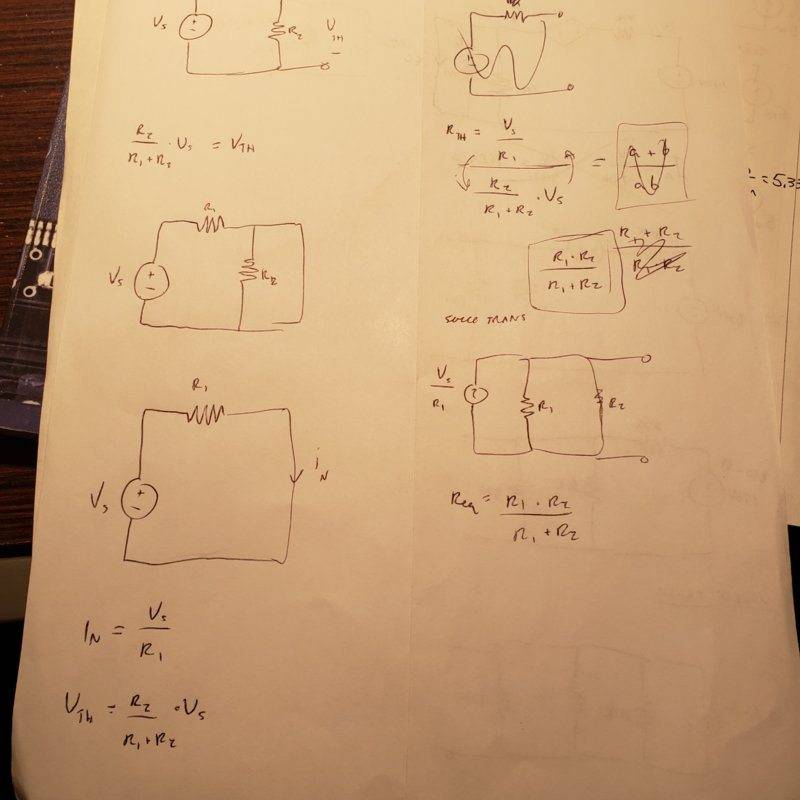 Vs
R2
VTH
−
R2
R1+R2 · Vs = VTH
R1
Vs
+
−
R2
R1
Vs
+
−
iN
IN = Vs
R1
VTH = R2
R1+R2 · Vs
RTH = Vs
R1
R2
R1+R2 · Vs
=
a + b
a b
R1 · R2
R1+R2
SOURCE TRANS
Vs
R1
R1
R2
Req = R1 · R2
R1 + R2
= 5.33